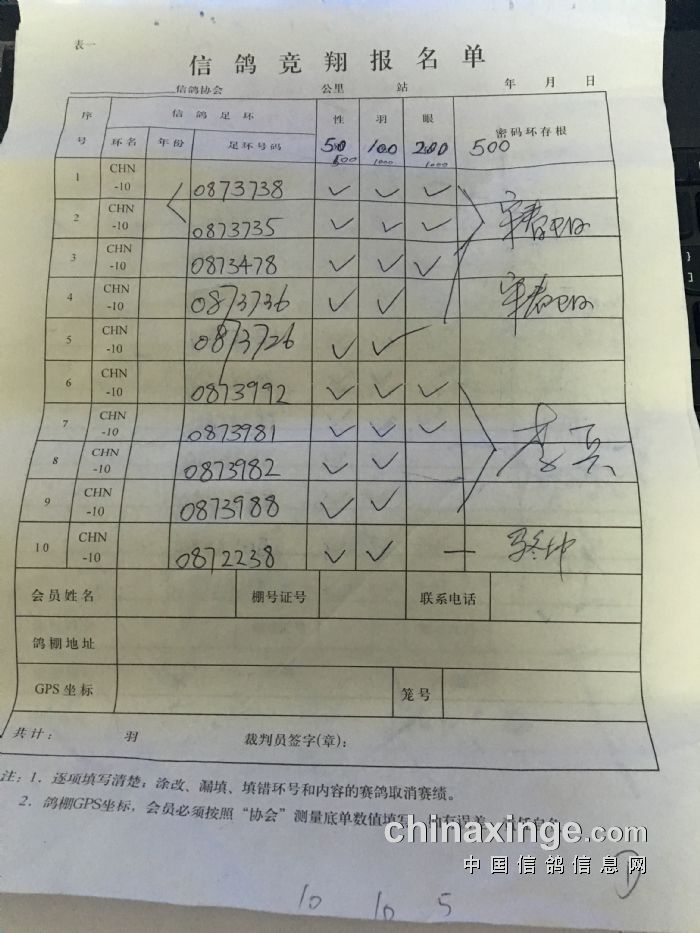 表一
信鸽竞翔报名单
信鸽协会 公里 站 年 月 日
序号 信鸽足环 性 羽 眼 密码环存根
环名 年份 足环号码 500 100 200 500
500 1000 1000
1 CHN-10 0873738 ✓ ✓ ✓
2 CHN-10 0873735 ✓ ✓ ✓
3 CHN-10 0873478 ✓ ✓ ✓
4 CHN-10 0873736 ✓ ✓
5 CHN-10 0873726 ✓ ✓
6 CHN-10 0873992 ✓ ✓ ✓
7 CHN-10 0873981 ✓ ✓ ✓
8 CHN-10 0873982 ✓ ✓
9 CHN-10 0873988 ✓ ✓
10 CHN-10 0872238 ✓ ✓ —
会员姓名 棚号证号 联系电话
鸽棚地址
GPS坐标 笼号
共计: 羽 裁判员签字(章):
注:1．逐项填写清楚；涂改、漏填、填错环号和内容的赛鸽取消赛绩。
2．鸽棚GPS坐标，会员必须按照“协会”测量底单数值填写
chinaxinge.com
中国信鸽信息网
10 10 5 ①